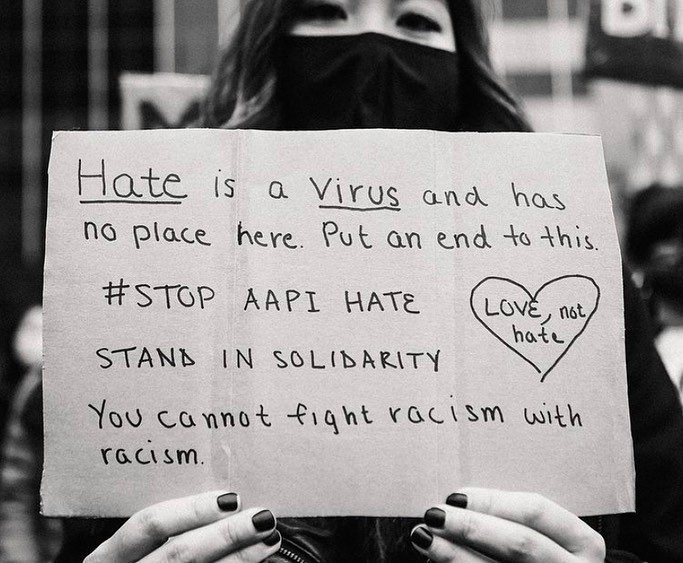 Hate is a Virus and has
no place here. Put an end to this.
#STOP AAPI HATE
LOVE, not
hate
STAND IN SOLIDARITY
You cannot fight racism with
racism.